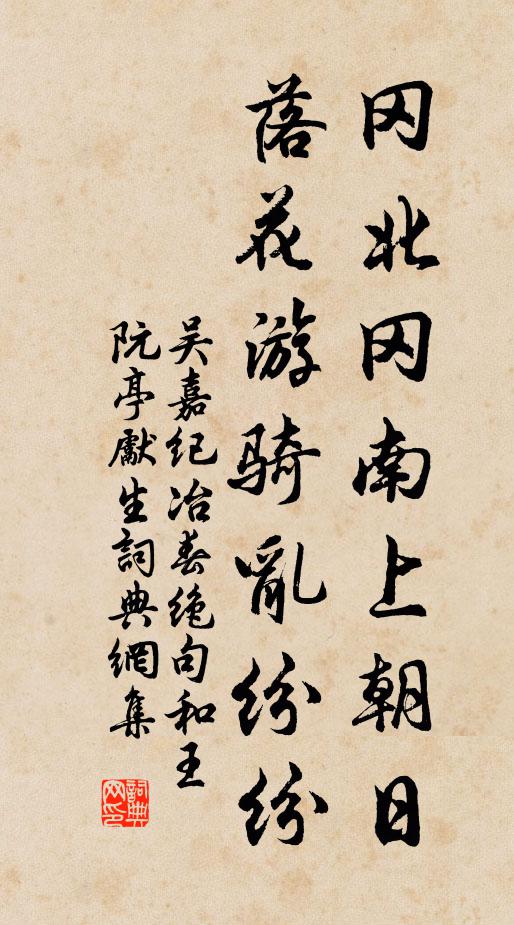 冈北冈南上朝日
落花游骑亂纷纷
吴嘉纪冶春绝句和王
阮亭獻生詞典網集
詞典
网印